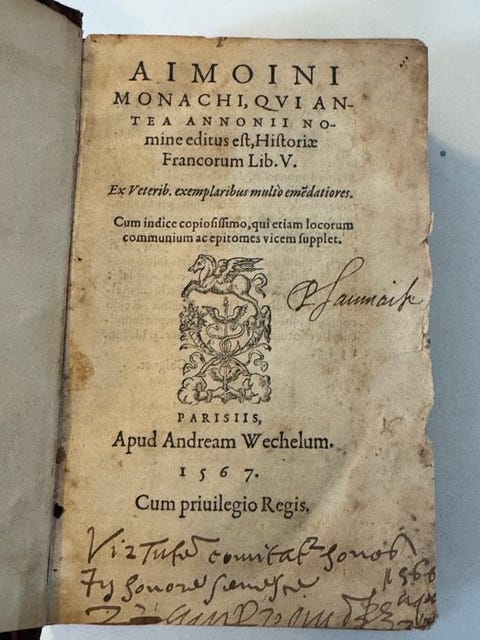 AIMOINI
MONACHI, QVI AN-
TEA ANNONII NO-
mine editus est, Historiæ
Francorum Lib. V.
Ex Veterib. exemplaribus multò emēdatiores.
Cum indice copiosissimo, qui etiam locorum
communium ac epitomes vicem supplet.
PARISIIS,
Apud Andream Wechelum.
1567.
Cum priuilegio Regis.
comitat honos
honore